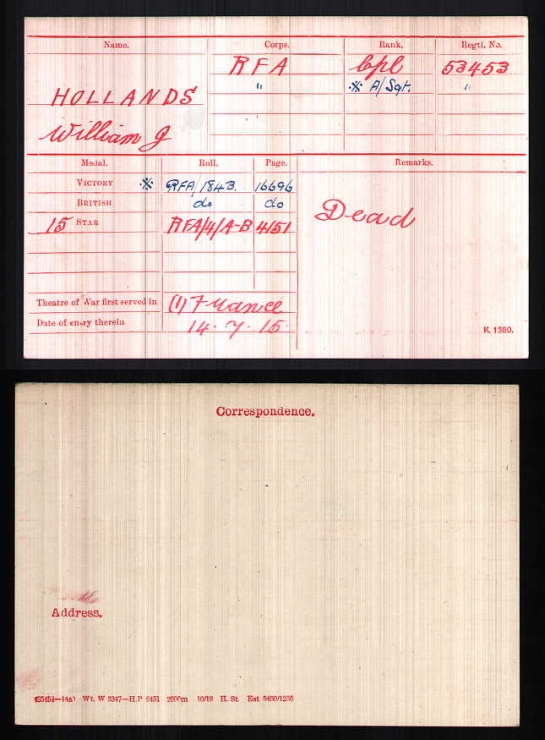 Name. Corps. Rank. Regtl. No.
RFA Cpl 53453
HOLLANDS " ※ A/Sgt. "
William J
Medal. Roll. Page. Remarks.
VICTORY ※ RFA/184B. 16696
BRITISH do do
15 STAR RFA/4/A-B 4151 Dead
Theatre of War first served in (1) France
Date of entry therein 14.7.15
K. 1380.
Correspondence.
Address.
Wt. W 5347—H.P 2000m 10/19 H. St